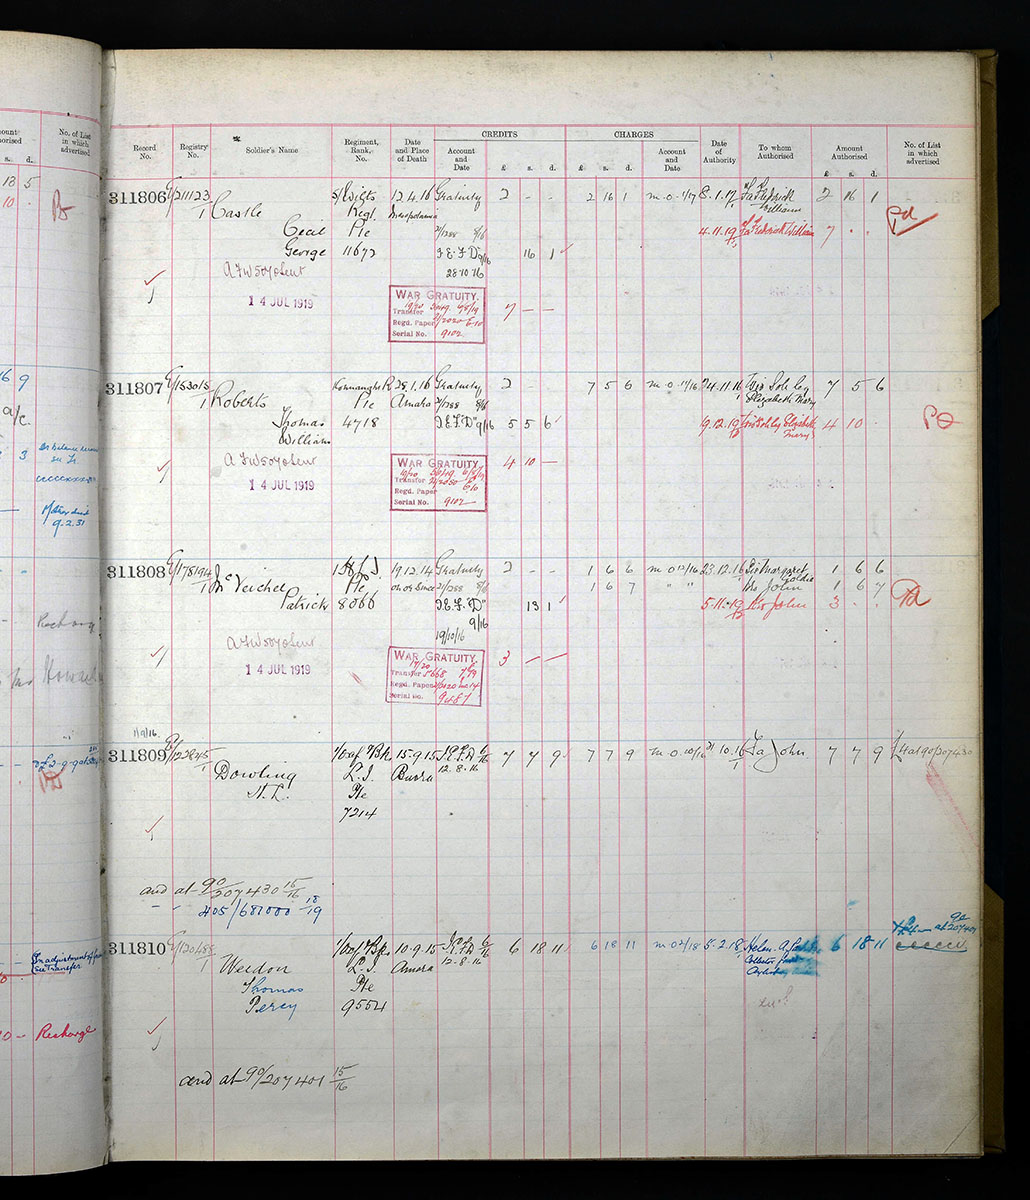 No. of List in which advertised
s. d.
18 5
10 -
16 9
a/c.
3
9.2.31
see Transfer
Recharge
CREDITS CHARGES
Record No. Registry No. Soldier's Name Regiment, Rank, No. Date and Place of Death Account and Date £ s. d. £ s. d. Account and Date Date of Authority To whom Authorised Amount Authorised No. of List in which advertised
£ s. d.
311806 E/211123/1 Castle 5/Wilts 12.4.16 Gratuity 2 - - 2 16 1 m.o. 1/17 8.1.17 Fa Fredrick 2 16 1
Regt. Mesopotamia William
Cecil Pte 21/1288 8/16 4.11.19 Fa Frederick William 7 . . Pd
George 11672 I.E.F "D" 9/16 16 1
28.10.16
14 JUL 1919
WAR GRATUITY.
Transfer 7 - -
Regd. Paper
Serial No. 9102
311807 E/153015/1 Roberts Connaught R 28.1.16 Gratuity 2 - 7 5 6 m.o. 11/16 24.11.16 Wid Sole leg 7 5 6
Pte Amara 21/1288 8/16 Elizabeth Mary
Thomas 4718 I.E.F "D" 9/16 5 5 6 9.12.19 Wid Sole leg Elizabeth 4 10 . PD
William Mary
14 JUL 1919
WAR GRATUITY. 4 10 -
Transfer
Regd. Paper
Serial No. 9102
311808 E/178194/1 McVeichel 1 H.L.I. 19.12.14 Gratuity 2 - - 1 6 6 m.o. 12/16 23.12.16 Sis Margaret 1 6 6
Goldie
Pte on or since 21/1288 8/16 1 6 7 " " Bro John 1 6 7
Patrick 8066 I.E.F "D" 13 1 5.11.19 Bro John 3 . . Pd
9/16
19/10/16
14 JUL 1919
WAR GRATUITY. 3 - -
Transfer
Regd. Paper
Serial No. 9487
11/9/16.
311809 E/123245/1 Dowling 1/Oxf & Bks 15-9-15 I.E.F.D 6/16 7 7 9 7 7 9 m.o. 10/16 21.10.16 Fa John 7 7 9 4 at 90/207430
L.I. Burra 12.8.16
Pte
7214
and at 90/207430 15/16
405/681000 18/19
311810 E/120488/1 Weedon 1/Oxf & Bks 10-9-15 I.E.F.D 6/16 6 18 11 6 18 11 m.o. 2/18 5.2.18 Helen. A. 6 18 11
L.I. Amara 12.8.16 Collector
Thomas Pte
Percy 9554
and at 90/207401 15/16